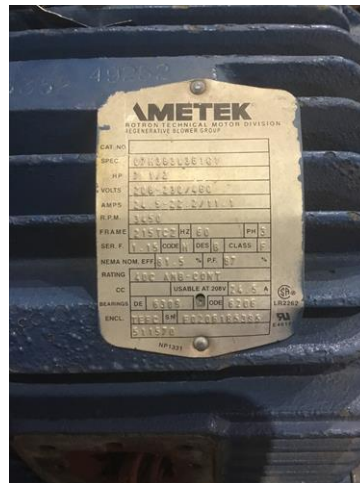 AMETEK
ROTRON TECHNICAL MOTOR DIVISION
REGENERATIVE BLOWER GROUP
CAT. NO
SPEC.
H.P. 7 1/2
VOLTS 208-230/460
AMPS 24.5-22.2/11.1
R.P.M. 3450
FRAME 215TCZ HZ 60 PH 3
SER. F. 1.15 CODE H DES B CLASS F
NEMA NOM. EFF 81.5 % P.F. 87 %
RATING 40C AMB-CONT
CC USABLE AT 208V 24.5 A
BEARINGS DE 6305 ODE 6206
ENCL. TEFC SN
511570
NP1321
LR2262